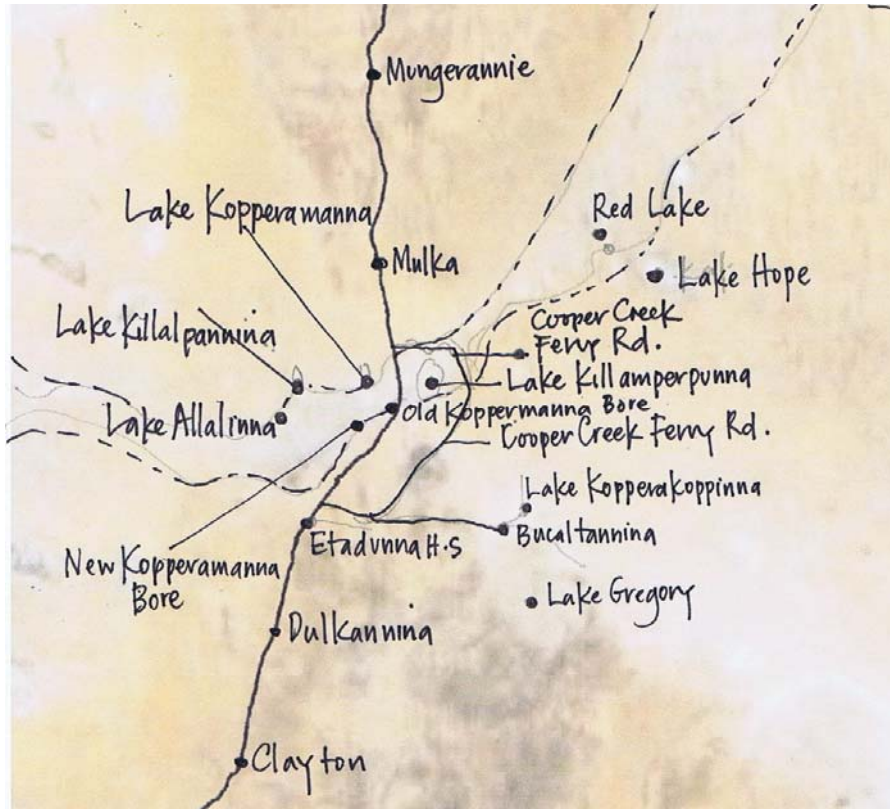 Mungerannie
Lake Kopperamanna
Red Lake
Mulka
Lake Hope
Lake Killalpannina
Cooper Creek
Ferry Rd.
Lake Killamperpunna
Lake Allalinna
Old Koppermanna Bore
Cooper Creek Ferry Rd.
Lake Kopperakoppinna
Bucaltannina
Etadunna H.S
New Kopperamanna
Bore
Lake Gregory
Dulkannina
Clayton